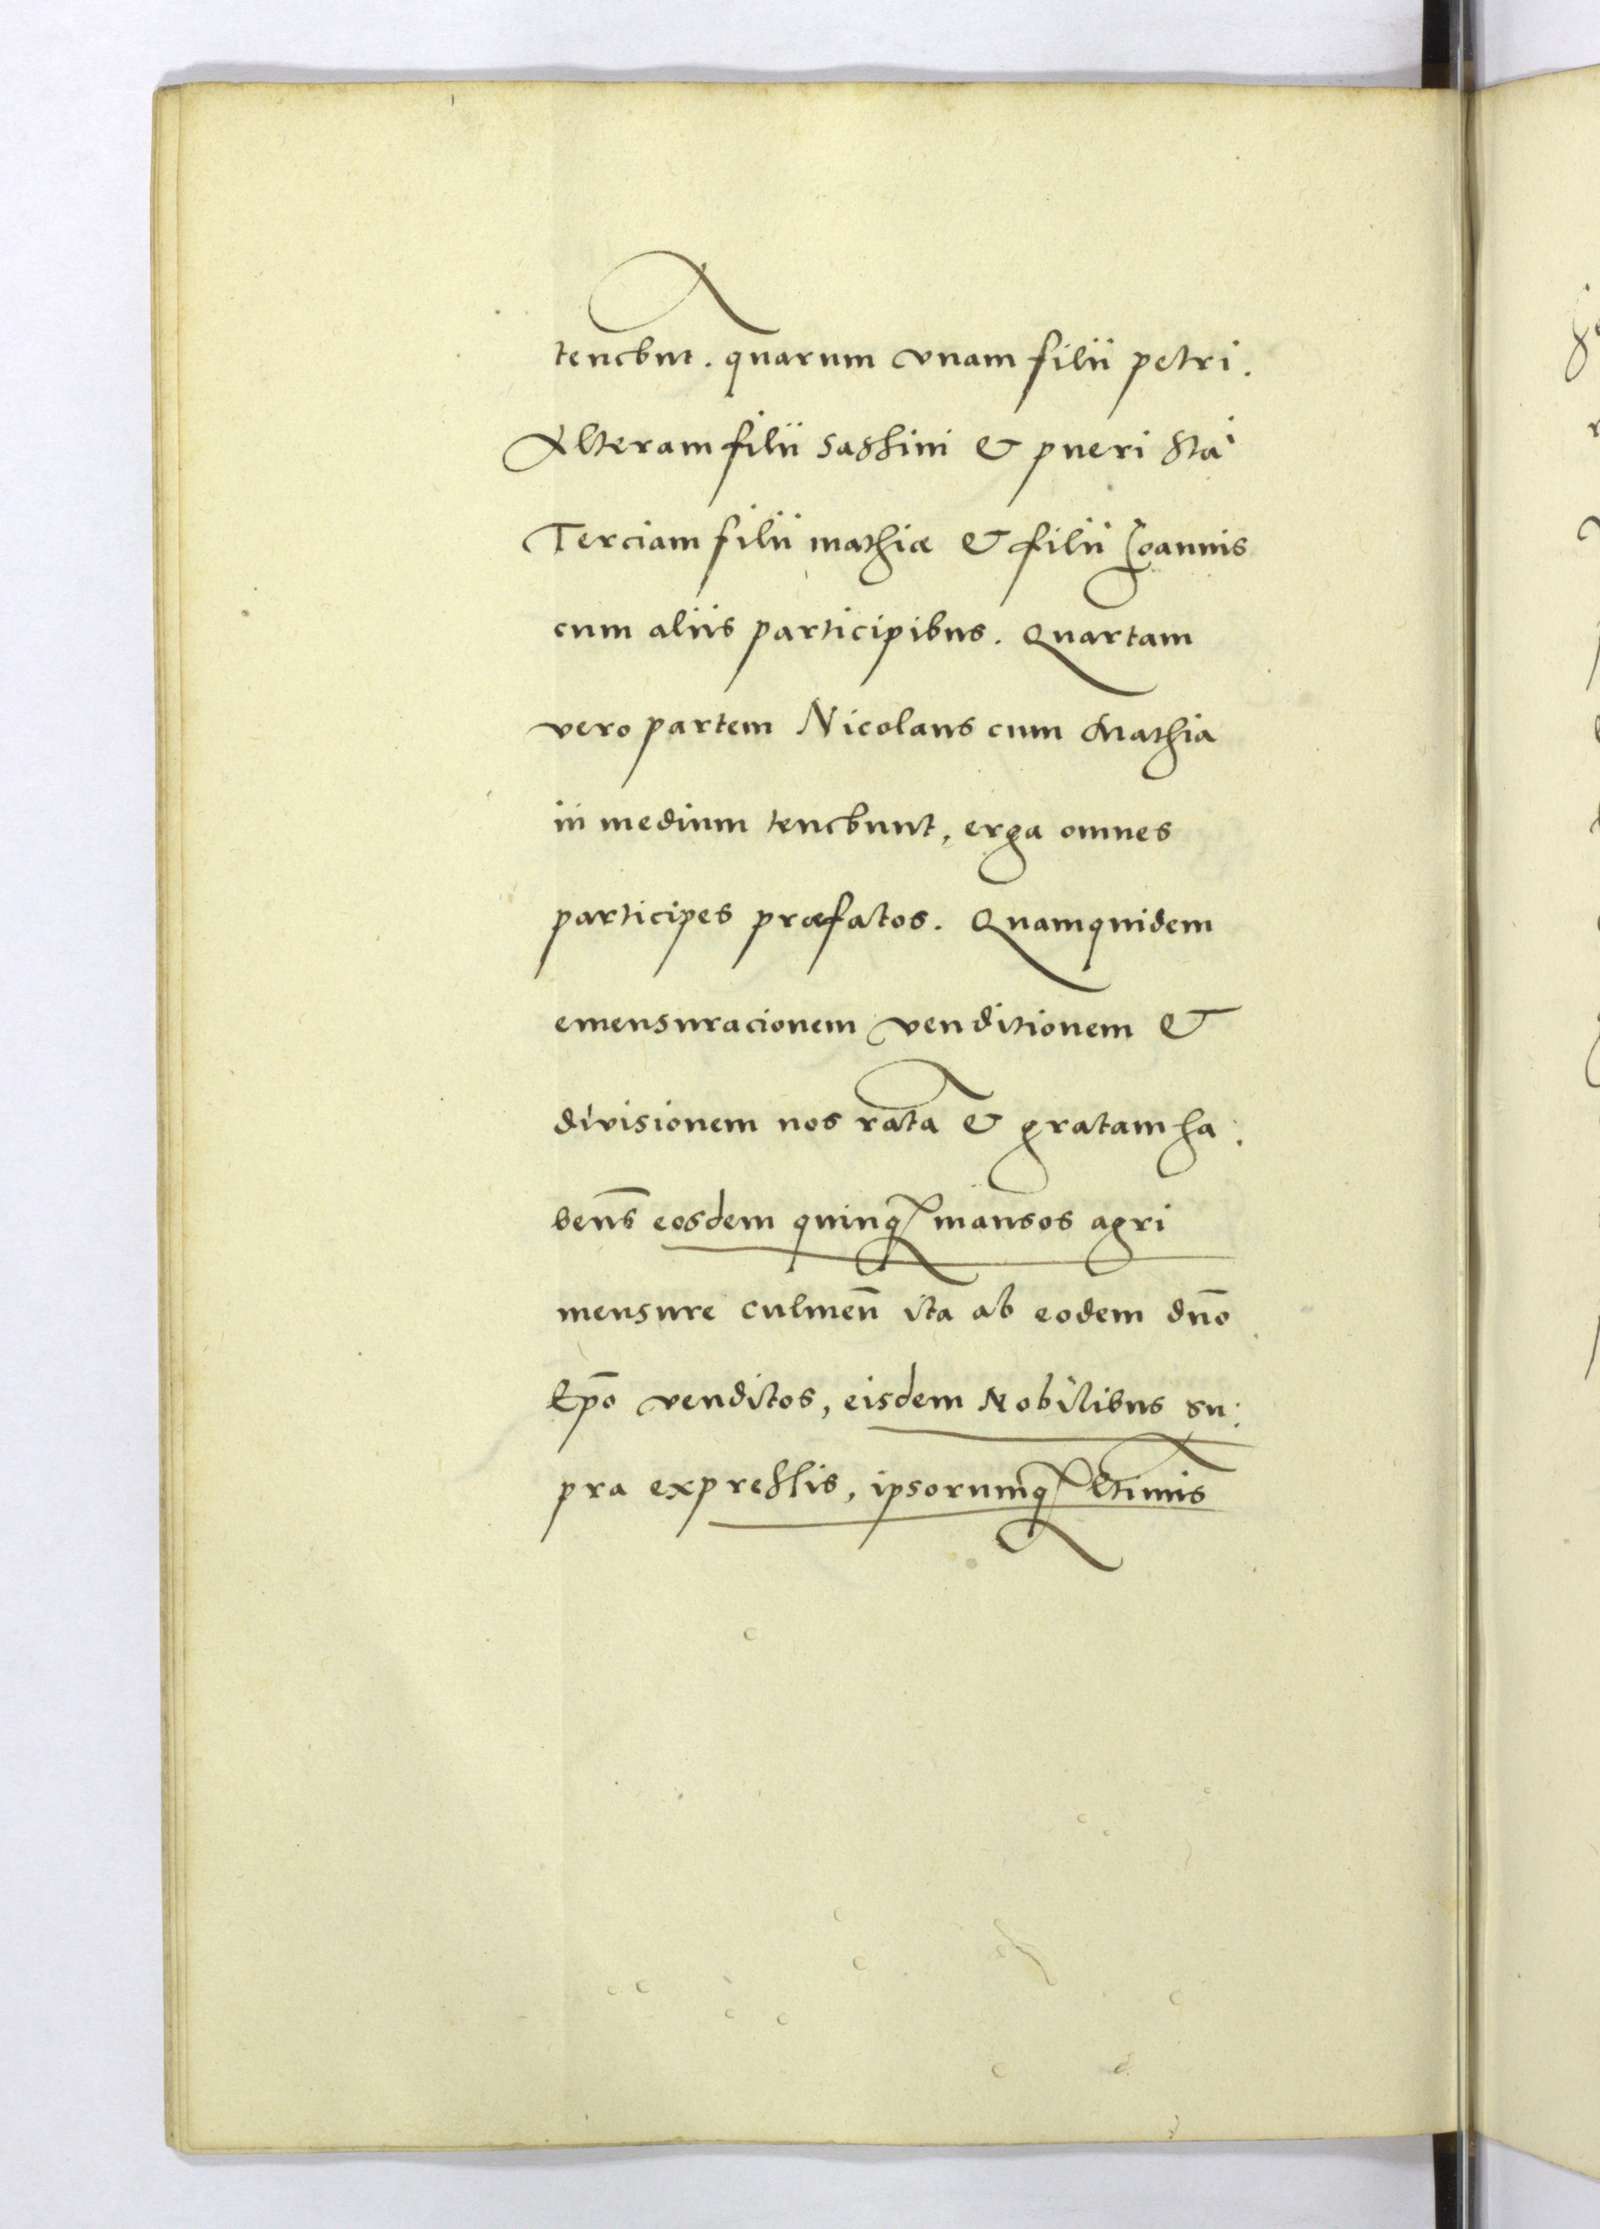 tenebnt. quarum vnam filii petri.
Alteram filii Sassini & pueri Sta
Terciam filii mathiæ & filii Joannis
cum aliis participibus. Quartam
vero partem Nicolaus cum Mathia
in medium tenebunt, erga omnes
participes præfatos. Quamquidem
emensuracionem venditionem &
divisionem nos rata & gratam ha:
bens eosdem quinq mansos agri
mensure culmen̄ ita ab eodem dn̄o
Ep̄o venditos, eisdem Nobilibus su:
pra expressis, ipsorumq ltimis